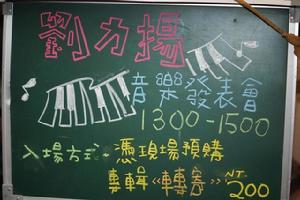 劉力揚
音樂發表會
1300-1500
入場方式。憑現場預購
專輯《轉寄》NT.200